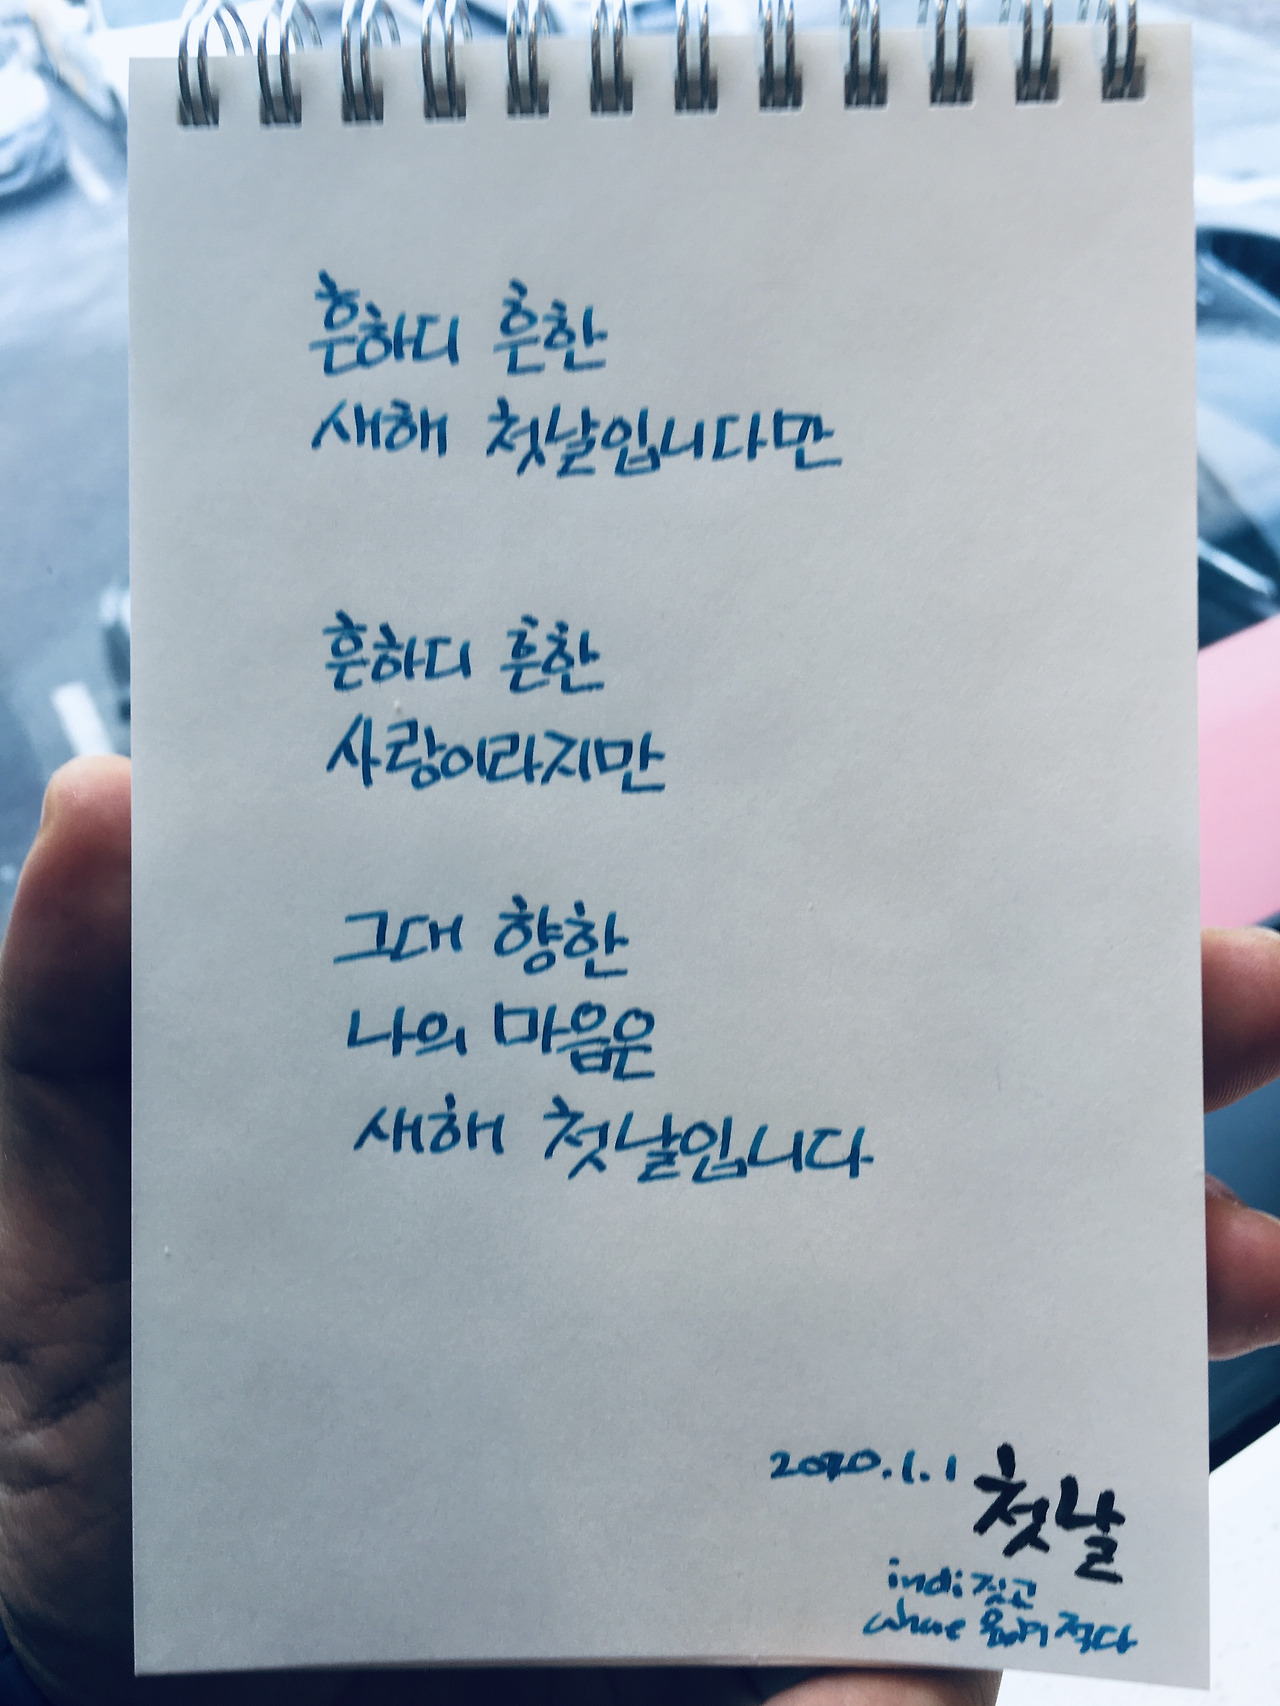 흔하디 흔한
새해 첫날입니다만
흔하디 흔한
사랑이라지만
그대 향한
나의 마음은
새해 첫날입니다
2020.1.1 첫날
indi 짓고
적다